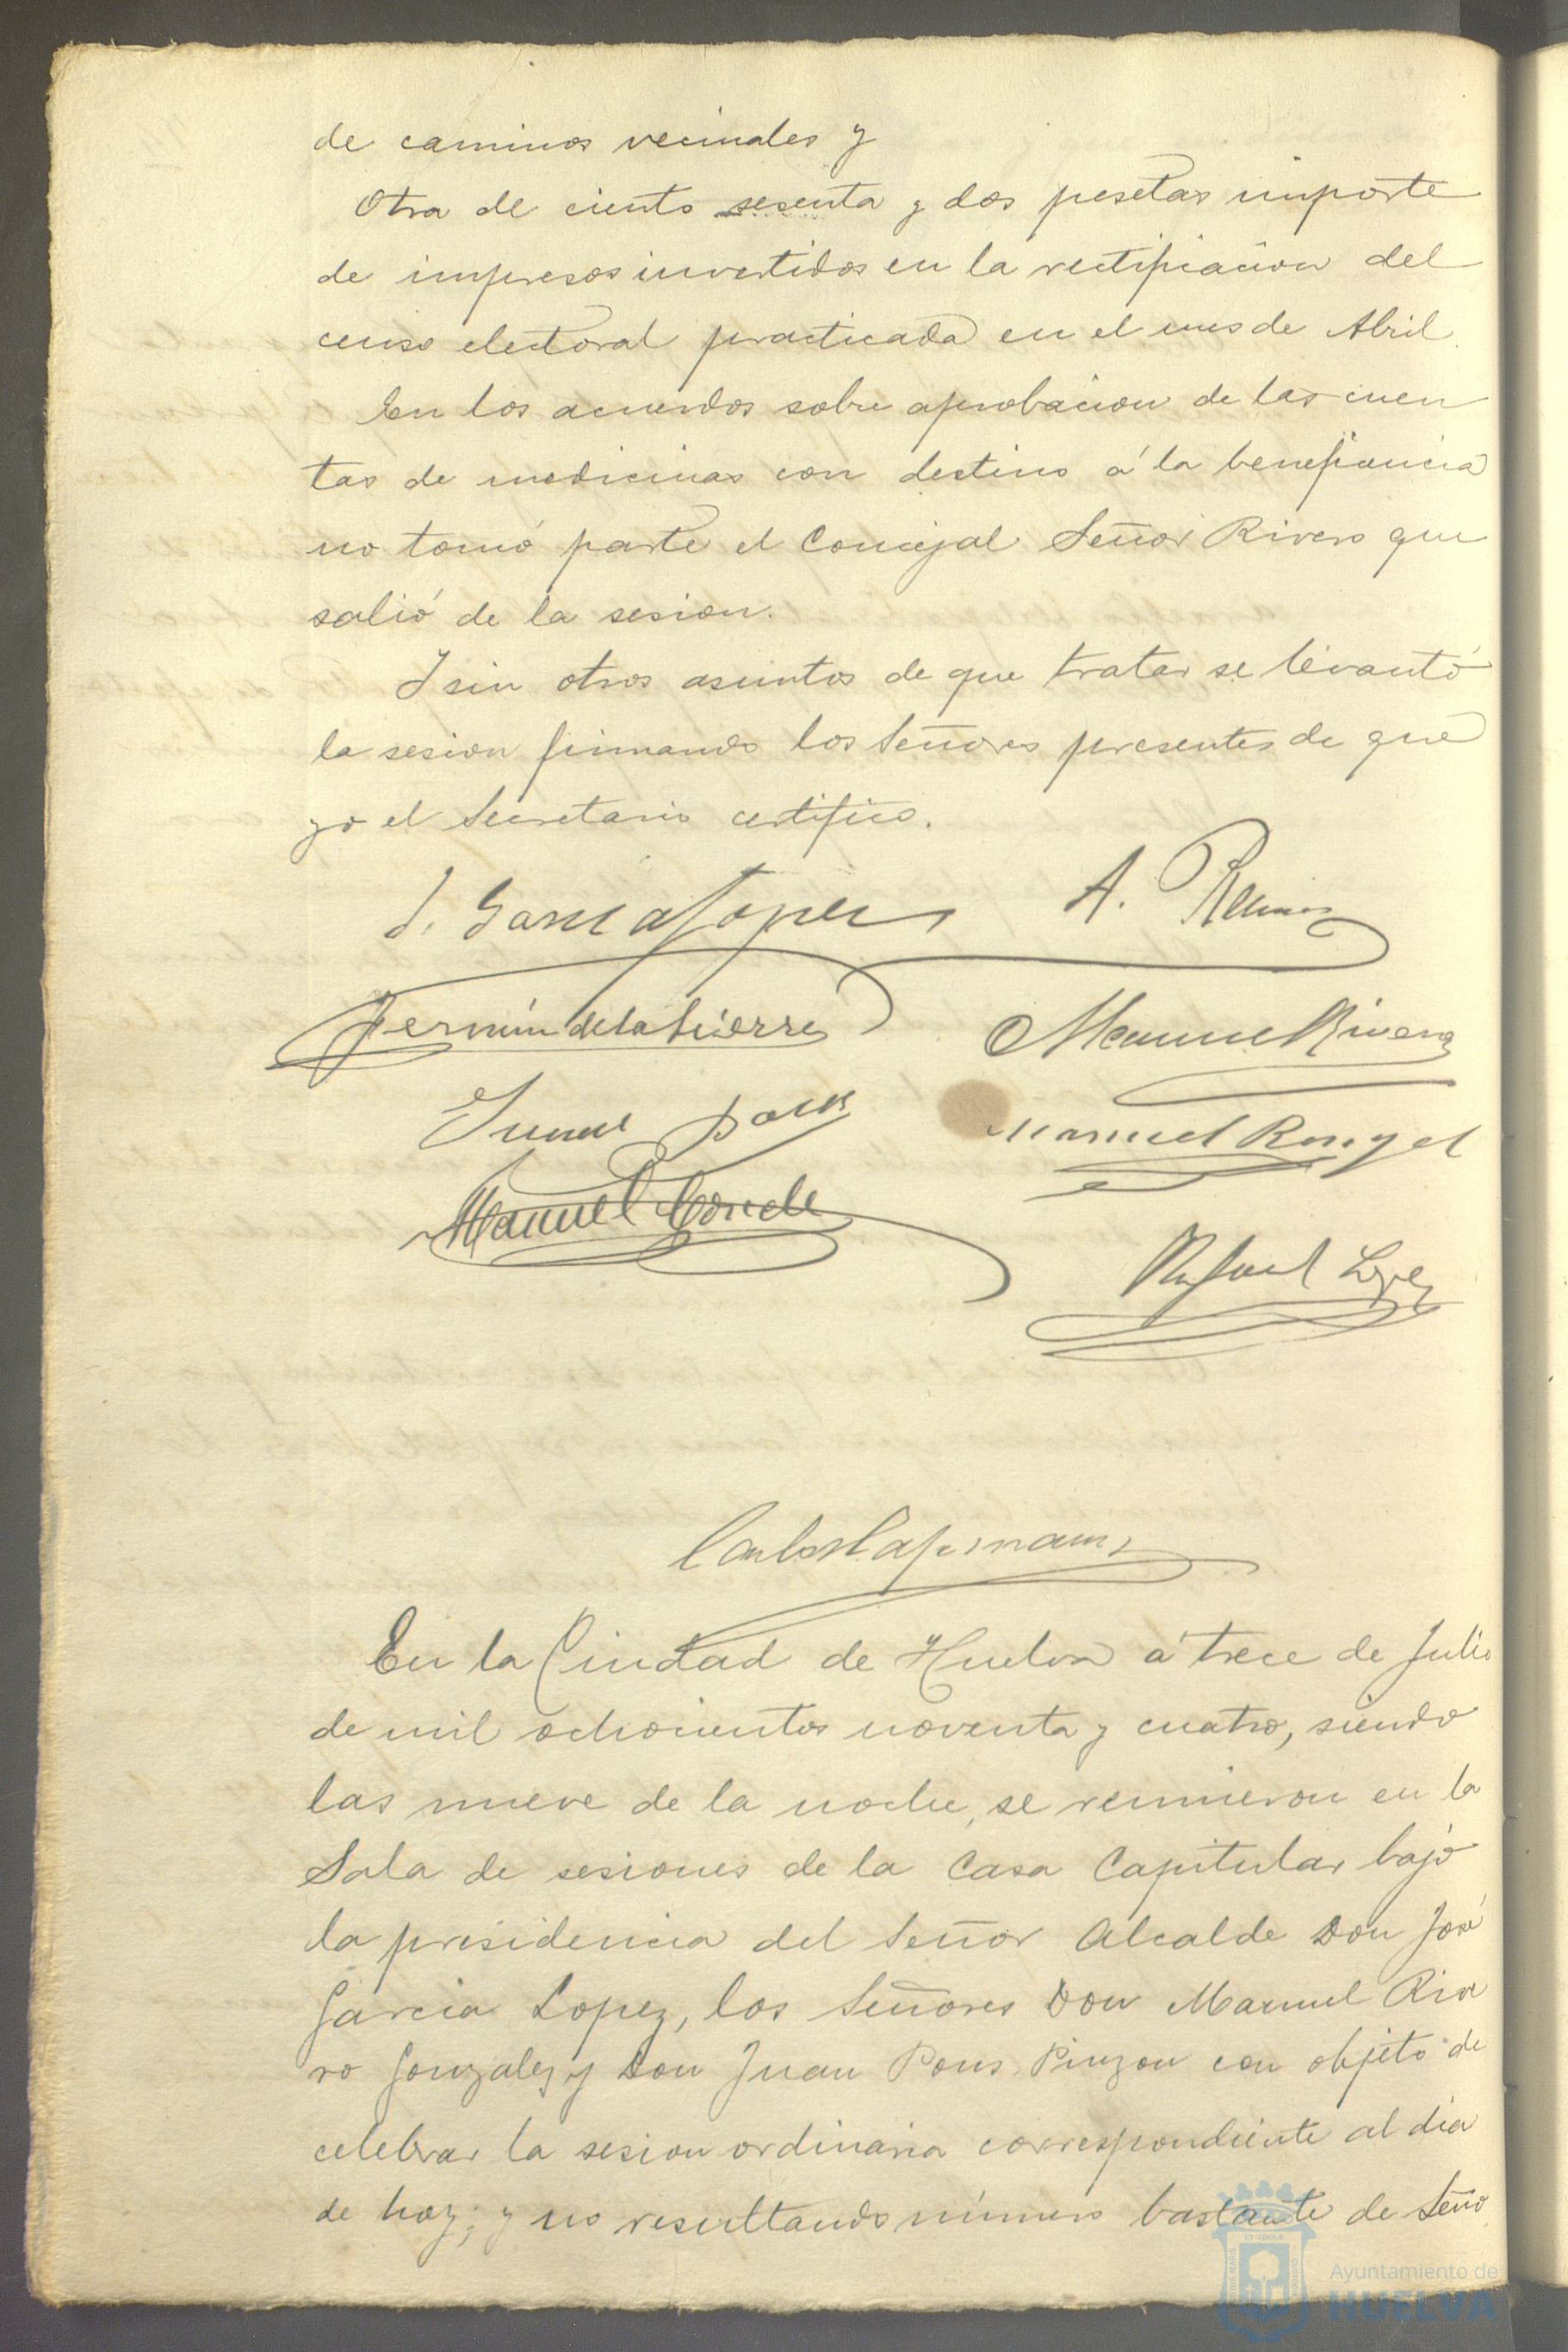 de caminos vecinales y
Otra de ciento sesenta y dos pesetas importe
de impresos invertidos en la rectificacion del
censo electoral practicada en el mes de Abril.
En los acuerdos sobre aprobacion de las cuen
tas de medicinas con destino á la beneficencia
no tomó parte el Concejal Señor Rivero que
salió de la sesion.
Y sin otros asuntos de que tratar se levantó
la sesion firmando los Señores presentes de que
yo el Secretario certifico.
J. Garcia Lopez A.
Fermín de la Sierra Manuel Rivero
Juan Pons Manuel Rengel
Manuel Conde
Rafael Lopez
En la Ciudad de Huelva á trece de Julio
de mil ochocientos noventa y cuatro, siendo
las nueve de la noche, se reunieron en la
Sala de sesiones de la Casa Capitular bajo
la presidencia del Señor Alcalde Don José
Garcia Lopez, los Señores Don Manuel Rive
ro Gonzalez y Don Juan Pons Pinzon con objeto de
celebrar la sesion ordinaria correspondiente al dia
de hoy; y no resultando número bastante de Seño
Ayuntamiento de
HUELVA